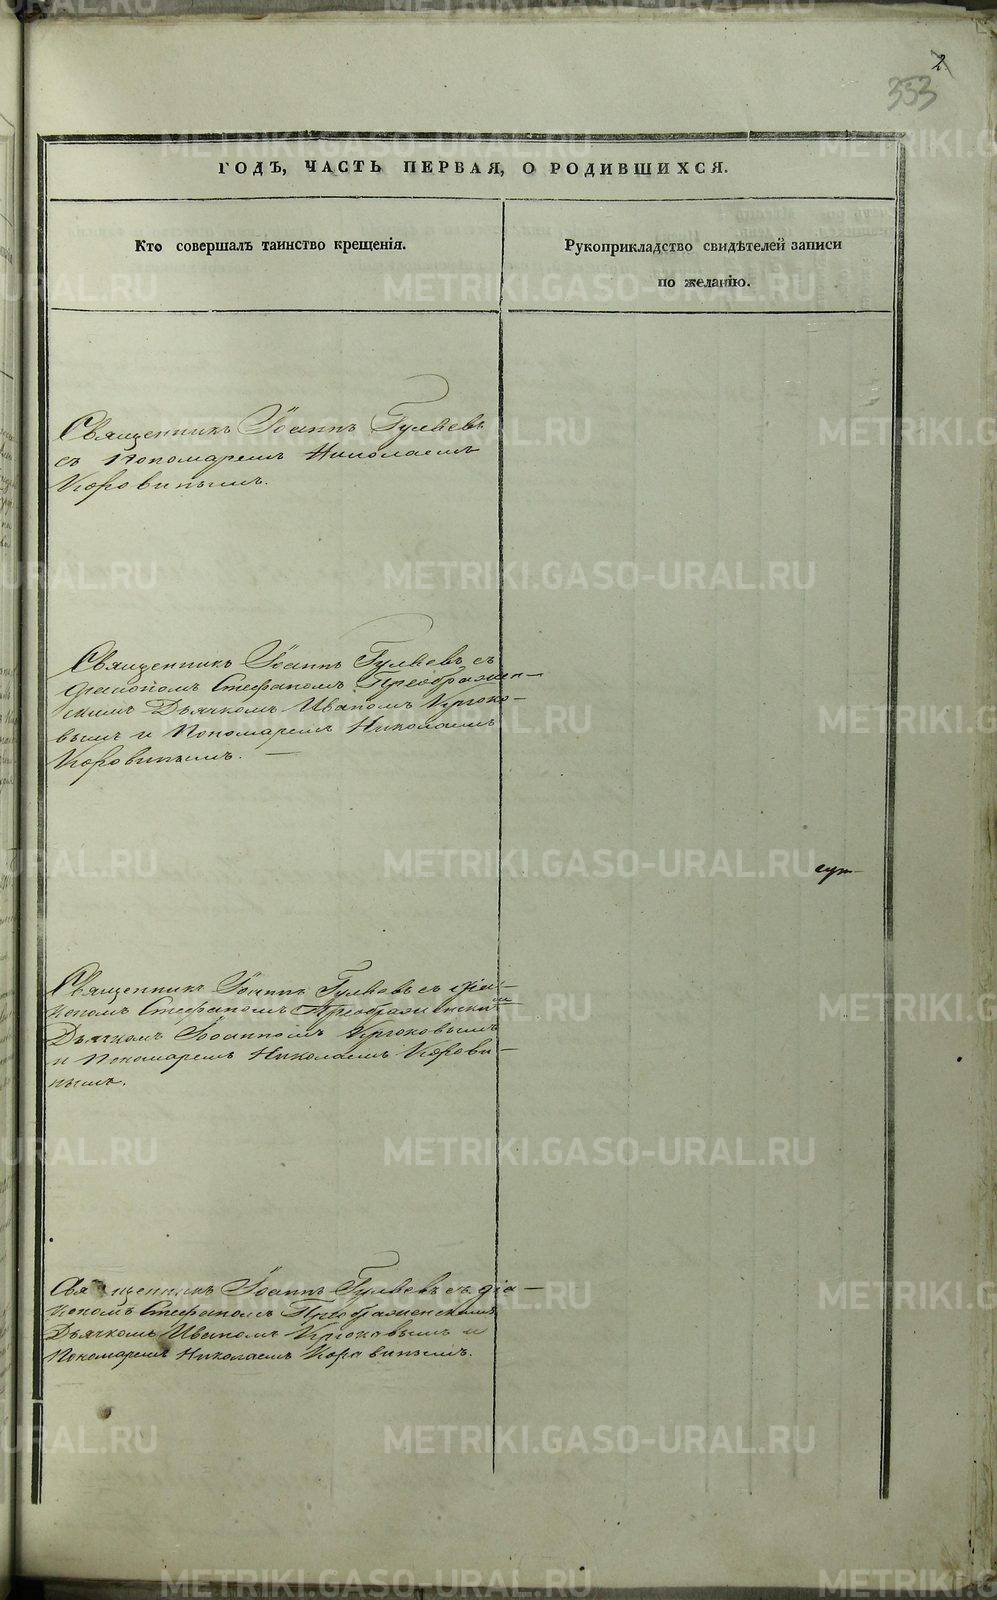 2
353
ГОДЪ, ЧАСТЬ ПЕРВАЯ, О РОДИВШИХСЯ.
Кто совершалъ таинство крещенія.
Рукоприкладство свидѣтелей записи
по желанію.
Священникъ Іоаннъ Гуляевъ
съ Пономаремъ Николаемъ
Коровинымъ.
Священникъ Іоаннъ Гуляевъ съ
діакономъ Стефаномъ Преображен-
скимъ Дьячкомъ Иваномъ Крюко-
вымъ и Пономаремъ Николаемъ
Коровинымъ. —
Священникъ Іоаннъ Гуляевъ съ діа-
кономъ Стефаномъ Преображенскимъ
Дьячкомъ Іоанномъ Крюковымъ
и Пономаремъ Николаемъ Корови-
нымъ.
Священникъ Іоаннъ Гуляевъ съ діа-
кономъ Стефаномъ Преображенскимъ
Дьячкомъ Иваномъ Крюковымъ и
Пономаремъ Николаемъ Коровинымъ.
METRIKI.GASO-URAL.RU